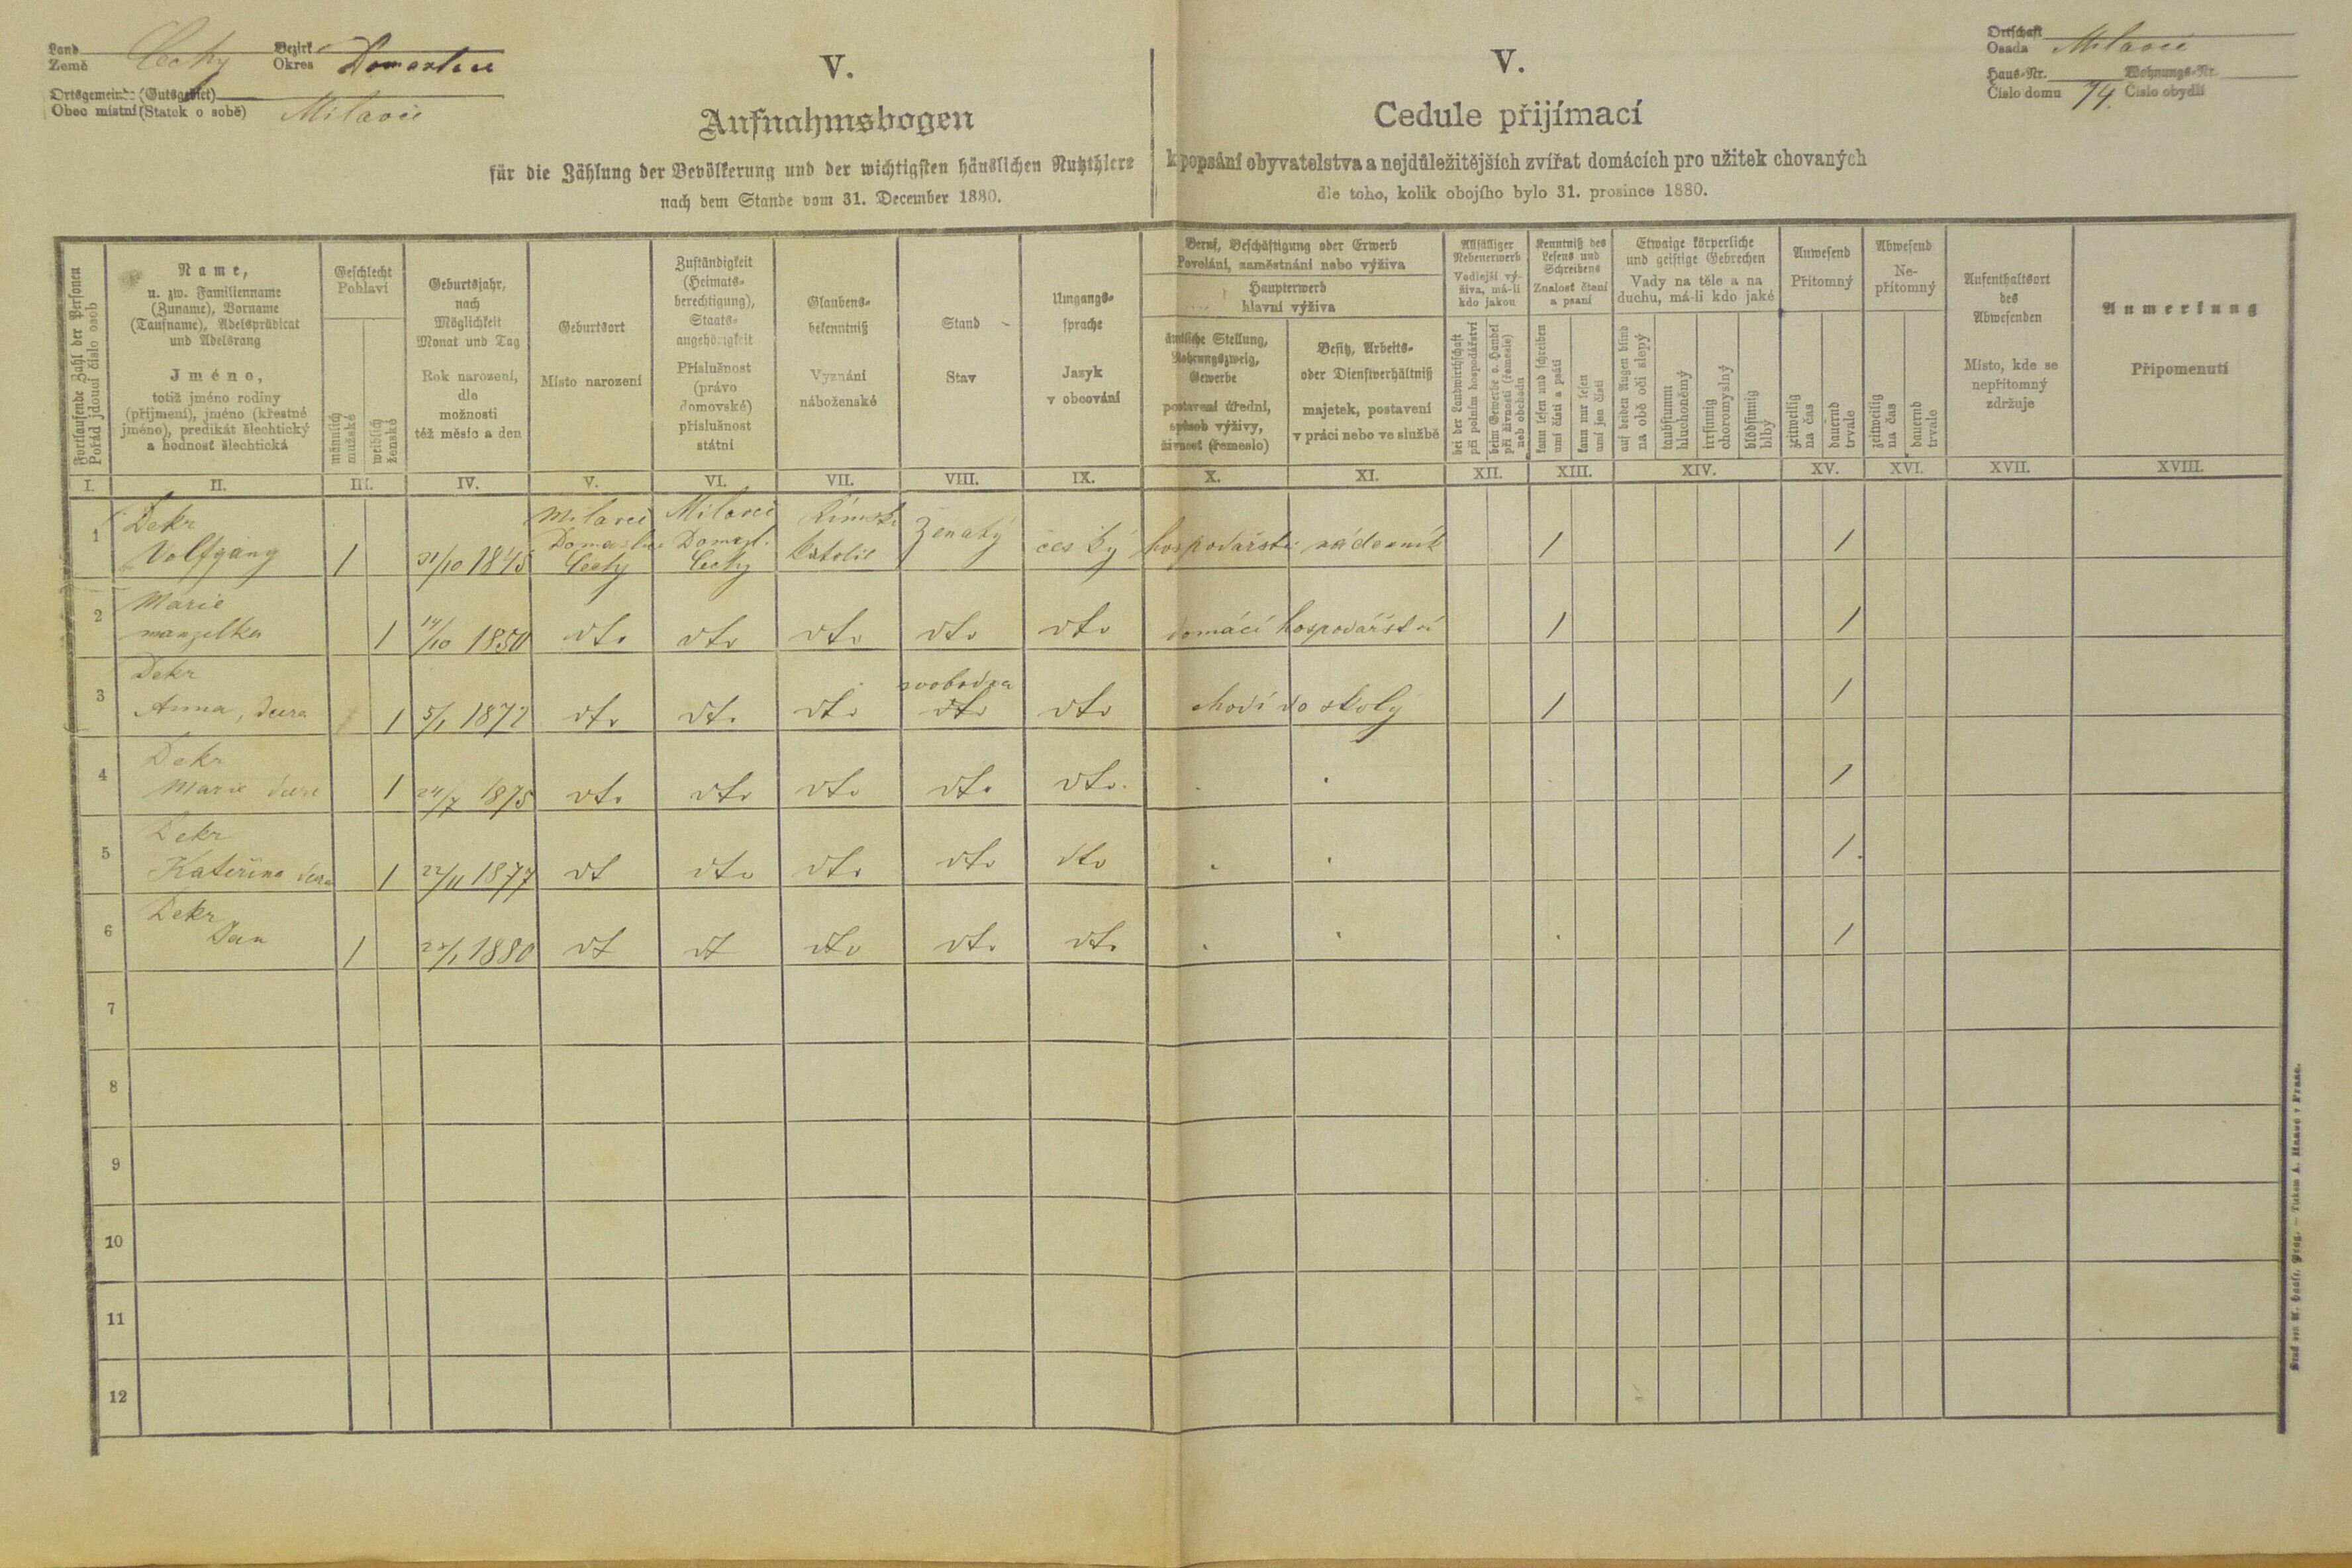 Land Čechy Bezirk
Země Okres Domažlice
Ortsgemeinde (Gutsgebiet)
Obec místní (Statek o sobě) Milavče
V.
Aufnahmsbogen
für die Zählung der Bevölkerung und der wichtigsten häuslichen Nutzthiere
nach dem Stande vom 31. December 1880.
V.
Cedule přijímací
k popsání obyvatelstva a nejdůležitějších zvířat domácích pro užitek chovaných
dle toho, kolik obojího bylo 31. prosince 1880.
Ortschaft
Osada Milavče
Haus-Nr. Wohnungs-Nr.
Číslo domu 74. Číslo obydlí
Fortlaufende Zahl der Personen
Pořád jdoucí číslo osob
Name,
u. zw. Familienname
(Zuname), Vorname
(Taufname), Adelsprädicat
und Adelsrang
Jméno,
totiž jméno rodiny
(příjmení), jméno (křestné
jméno), predikát šlechtický
a hodnost šlechtická
Geschlecht
Pohlaví
männlich
mužské
weiblich
ženské
Geburtsjahr,
nach
Möglichkeit
Monat und Tag
Rok narození,
dle
možnosti
též měsíc a den
Geburtsort
Místo narození
Zuständigkeit
(Heimats-
berechtigung),
Staats-
angehörigkeit
Příslušnost
(právo
domovské)
příslušnost
státní
Glaubens-
bekenntniß
Vyznání
náboženské
Stand
Stav
Umgangs-
sprache
Jazyk
v obcování
Beruf, Beschäftigung oder Erwerb
Povolání, zaměstnání nebo výživa
Haupterwerb
hlavní výživa
ämtliche Stellung,
Nahrungszweig,
Gewerbe
postavení úřední,
spůsob výživy,
živnost (řemeslo)
Besitz, Arbeits-
oder Dienstverhältniß
majetek, postavení
v práci nebo ve službě
Allfälliger
Nebenerwerb
Vedlejší vý-
živa, má-li
kdo jakou
bei der Landwirthschaft
při polním hospodářství
beim Gewerbe o. Handel
při živnosti (řemesle)
neb obchodu
Kenntniß des
Lesens und
Schreibens
Znalost čtení
a psaní
kann lesen und schreiben
umí čísti a psáti
kann nur lesen
umí jen čísti
Etwaige körperliche
und geistige Gebrechen
Vady na těle a na
duchu, má-li kdo jaké
auf beiden Augen blind
na obě oči slepý
taubstumm
hluchoněmý
irrsinnig
choromyslný
blödsinnig
blbý
Anwesend
Přítomný
zeitweilig
na čas
dauernd
trvale
Abwesend
Ne-
přítomný
zeitweilig
na čas
dauernd
trvale
Aufenthaltsort
des
Abwesenden
Místo, kde se
nepřítomný
zdržuje
Anmerkung
Připomenutí
I. II. III. IV. V. VI. VII. VIII. IX. X. XI. XII. XIII. XIV. XV. XVI. XVII. XVIII.
Dekr Milavči Milavči Římsko
1 Volfgang 1 31/10 1845 Domažlice Domazl. katolic Ženatý český hospodářství nádenník 1 1
Čechy Čechy
Marie
2 manzelka 1 14/10 1850 dto dto dto dto dto domácí hospodářství 1 1
Dekr svobodna
3 Anna, dcera 1 5/1 1872 dto dto dto dto dto chodí do školy 1 1
Dekr
4 Marie dcera 1 24/7 1875 dto dto dto dto dto. 1
Dekr
5 Kateřina dcera 1 22/11 1877 dt dto dto dto dto 1
Dekr
6 Jan 1 1880 dt dt dto dto dto 1
7
8
9
10
11
12